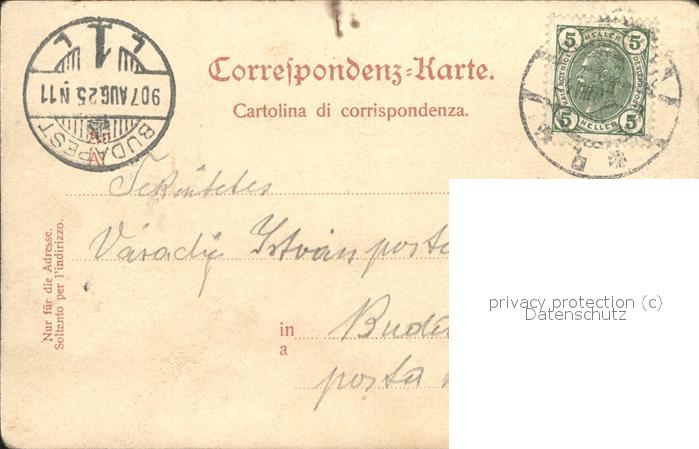 BUDAPEST
907 AUG 25 N 11
1
Correspondenz-Karte.
Cartolina di corrispondenza.
5 HELLER 5
5 HELLER 5
An
A
Nur für die Adresse.
Soltanto per l'indirizzo.
Tekintetes
Várady István posta
in Buda
a posta
privacy protection (c)
Datenschutz